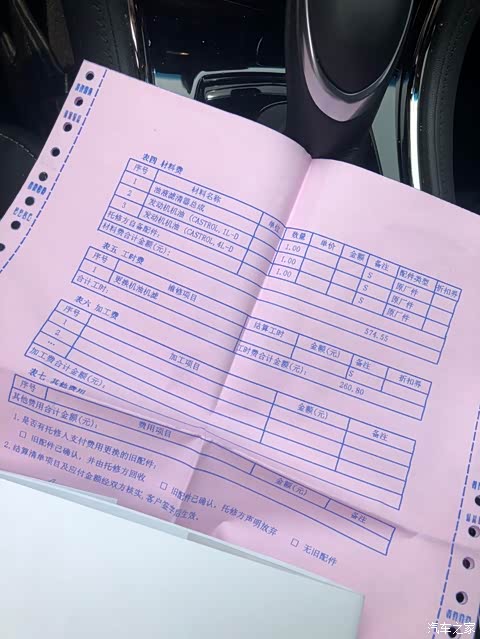 表四 材料费
序号 材料名称 单位 数量 单价 金额 备注 配件类型 折扣券
1 油液滤清器总成 1.00 S 原厂件
2 发动机机油 (CASTROL,1L-D 1.00 S 原厂件
3 发动机机油 (CASTROL,4L-D 1.00 S 原厂件
托修方自备配件:
材料费合计金额(元): 574.55
表五 工时费
序号 维修项目 结算工时 金额(元) 备注 折扣券
1 更换机油机滤 S
合计工时: 工时费合计金额(元): 260.80
表六 加工费
序号 加工项目 金额(元) 备注
1
2
...
加工费合计金额(元):
表七 其他费用
序号 费用项目 金额(元) 备注
其他费用合计金额(元):
1.是否有托修人支付费用更换的旧配件:
□ 旧配件已确认,并由托修方回收 □ 旧配件已确认,托修方声明放弃 □ 无旧配件
2.结算清单项目及应付金额经双方核实,客户签字后生效.
汽车之家